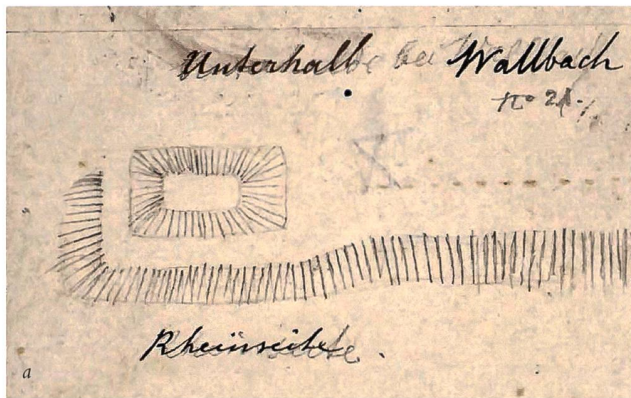 Unterhalb Wallbach
No 21.
Rheinseite.
a